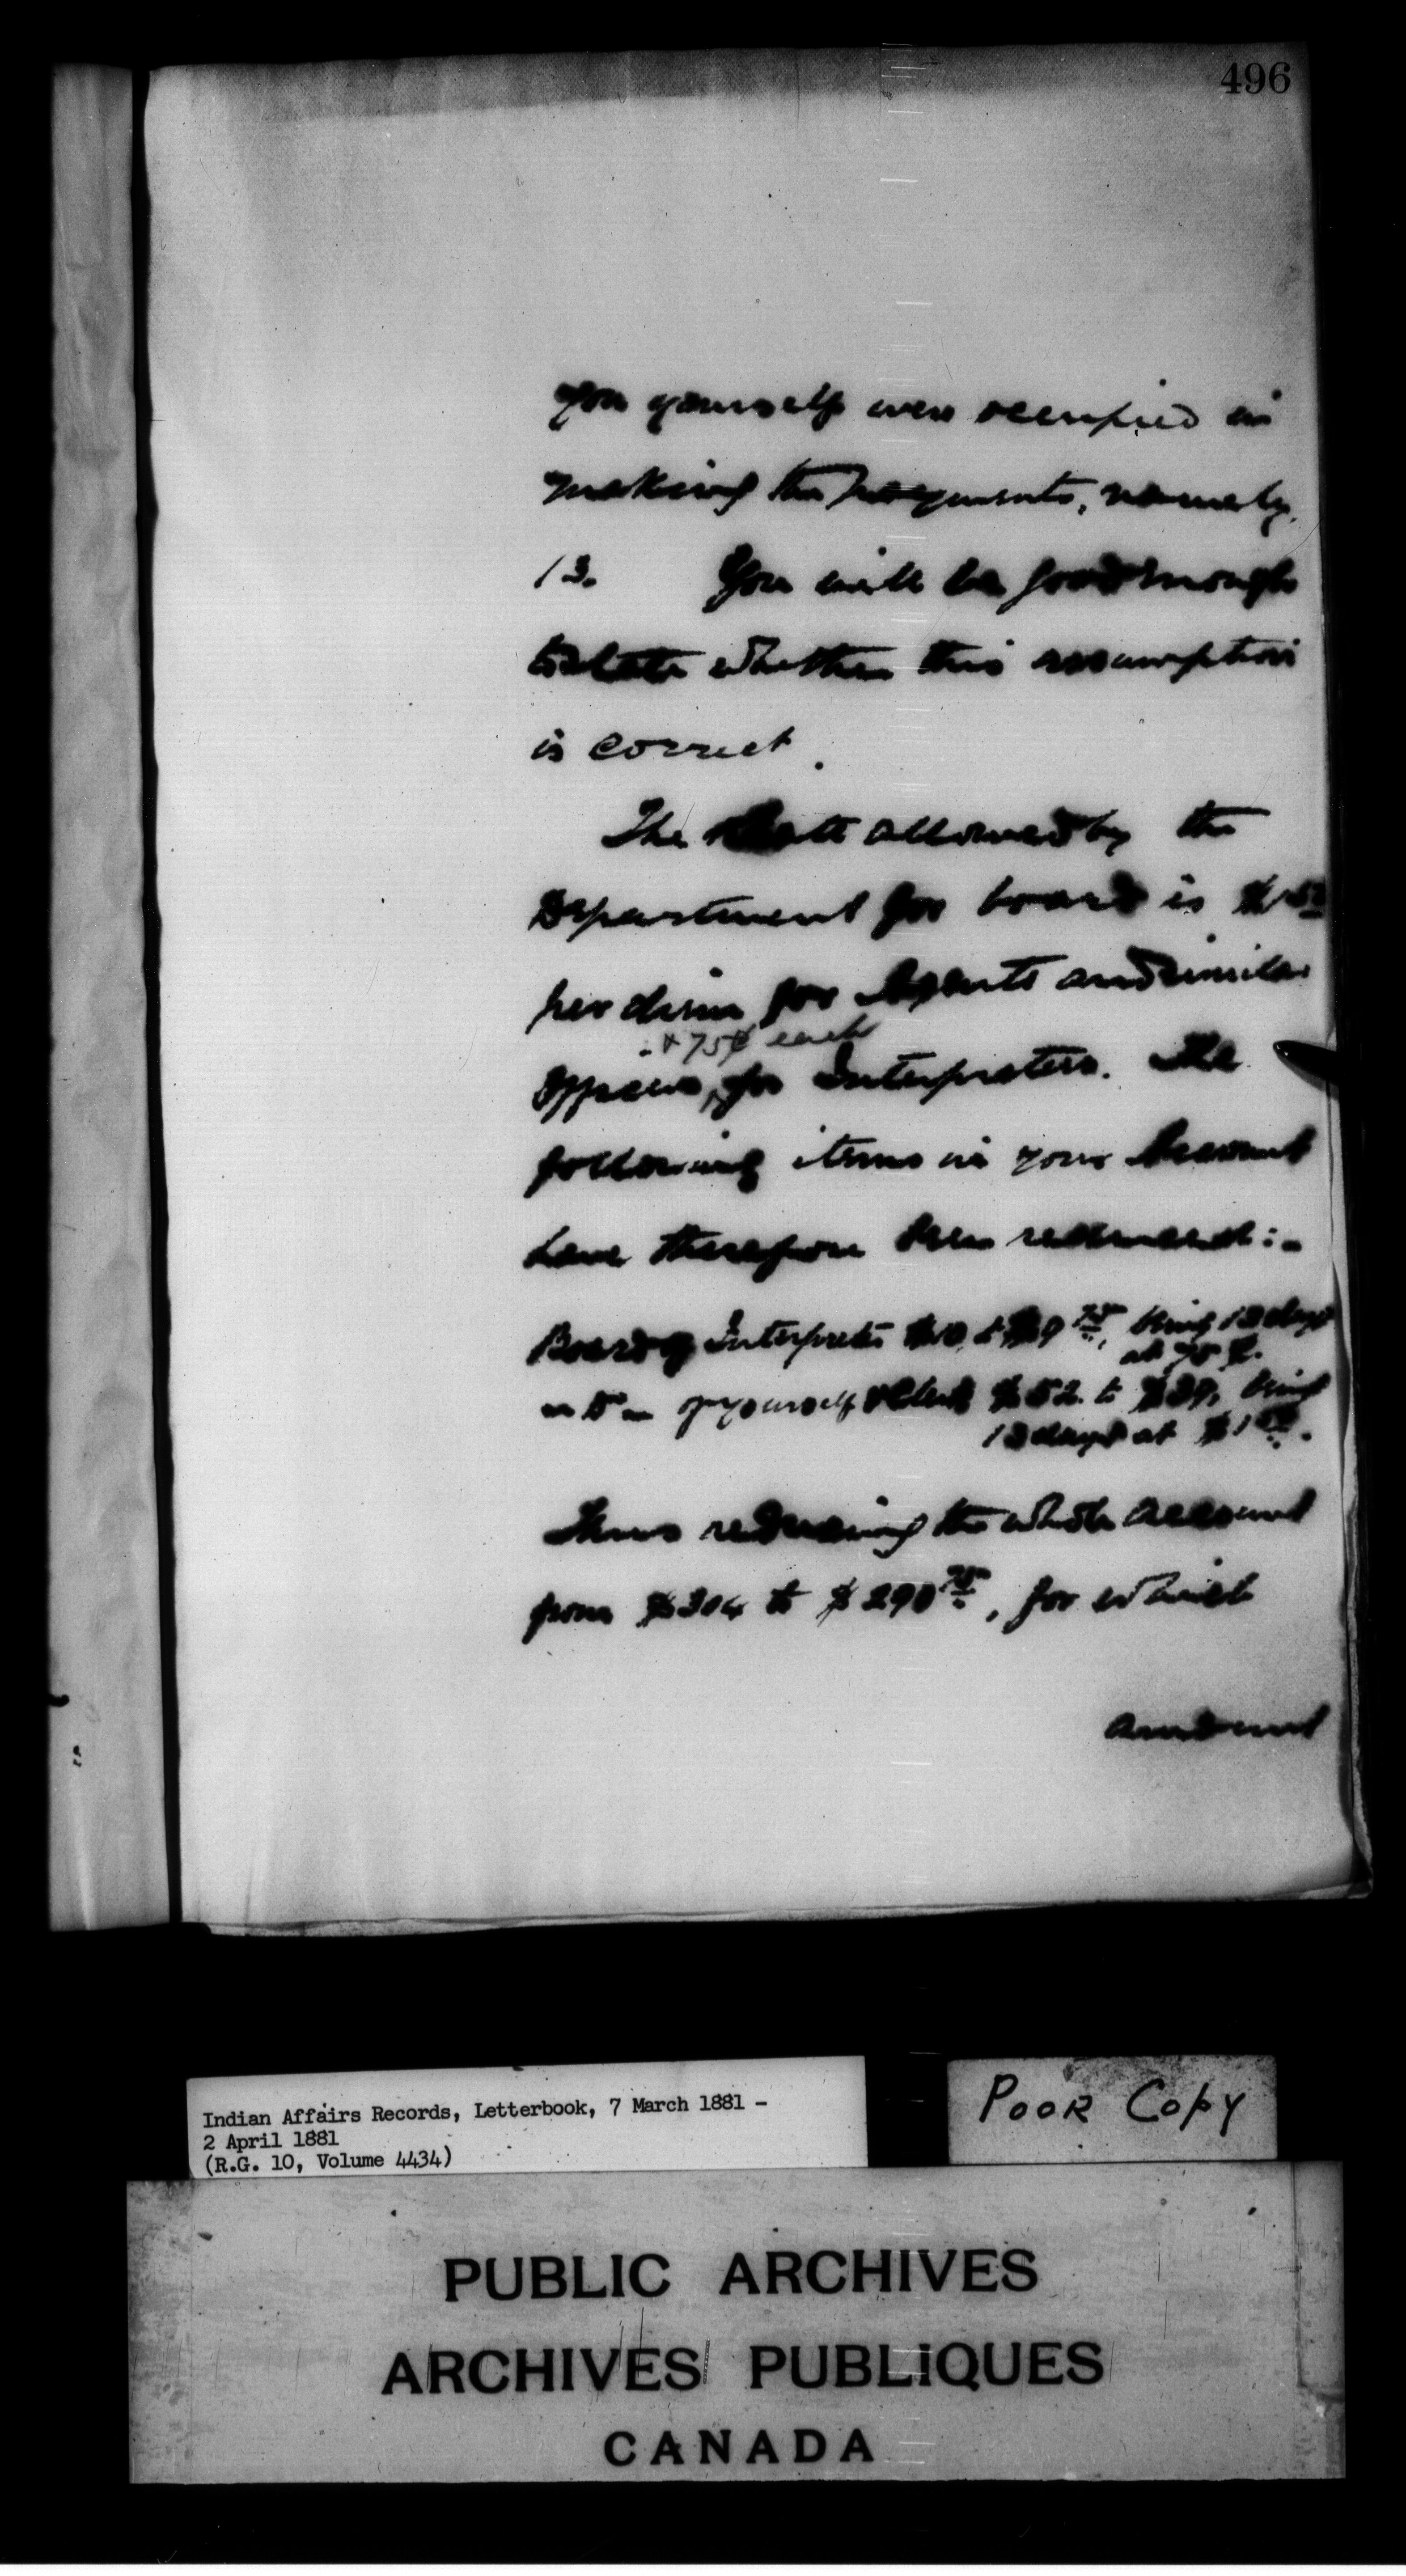 496
you yourself were occupied in
making the payments, namely,
13. You will be good enough
to state whether this assumption
is correct.
The rate allowed by the
Department for board is $1 50
per diem for Agents and similar
& 75¢ each
Officers, for Interpreters. The
following items in your Account
have therefore been reduced:-
Board of Interpreter to $9 75, being 13 days
at 75 ¢.
" D " of yourself & Clerk $52. to $39, being
13 days at $1 50.
Thus reducing the whole account
from $304 to $290 75, for which
amount
Indian Affairs Records, Letterbook, 7 March 1881 -
2 April 1881
(R.G. 10, Volume 4434)
Poor Copy
PUBLIC ARCHIVES
ARCHIVES PUBLIQUES
CANADA